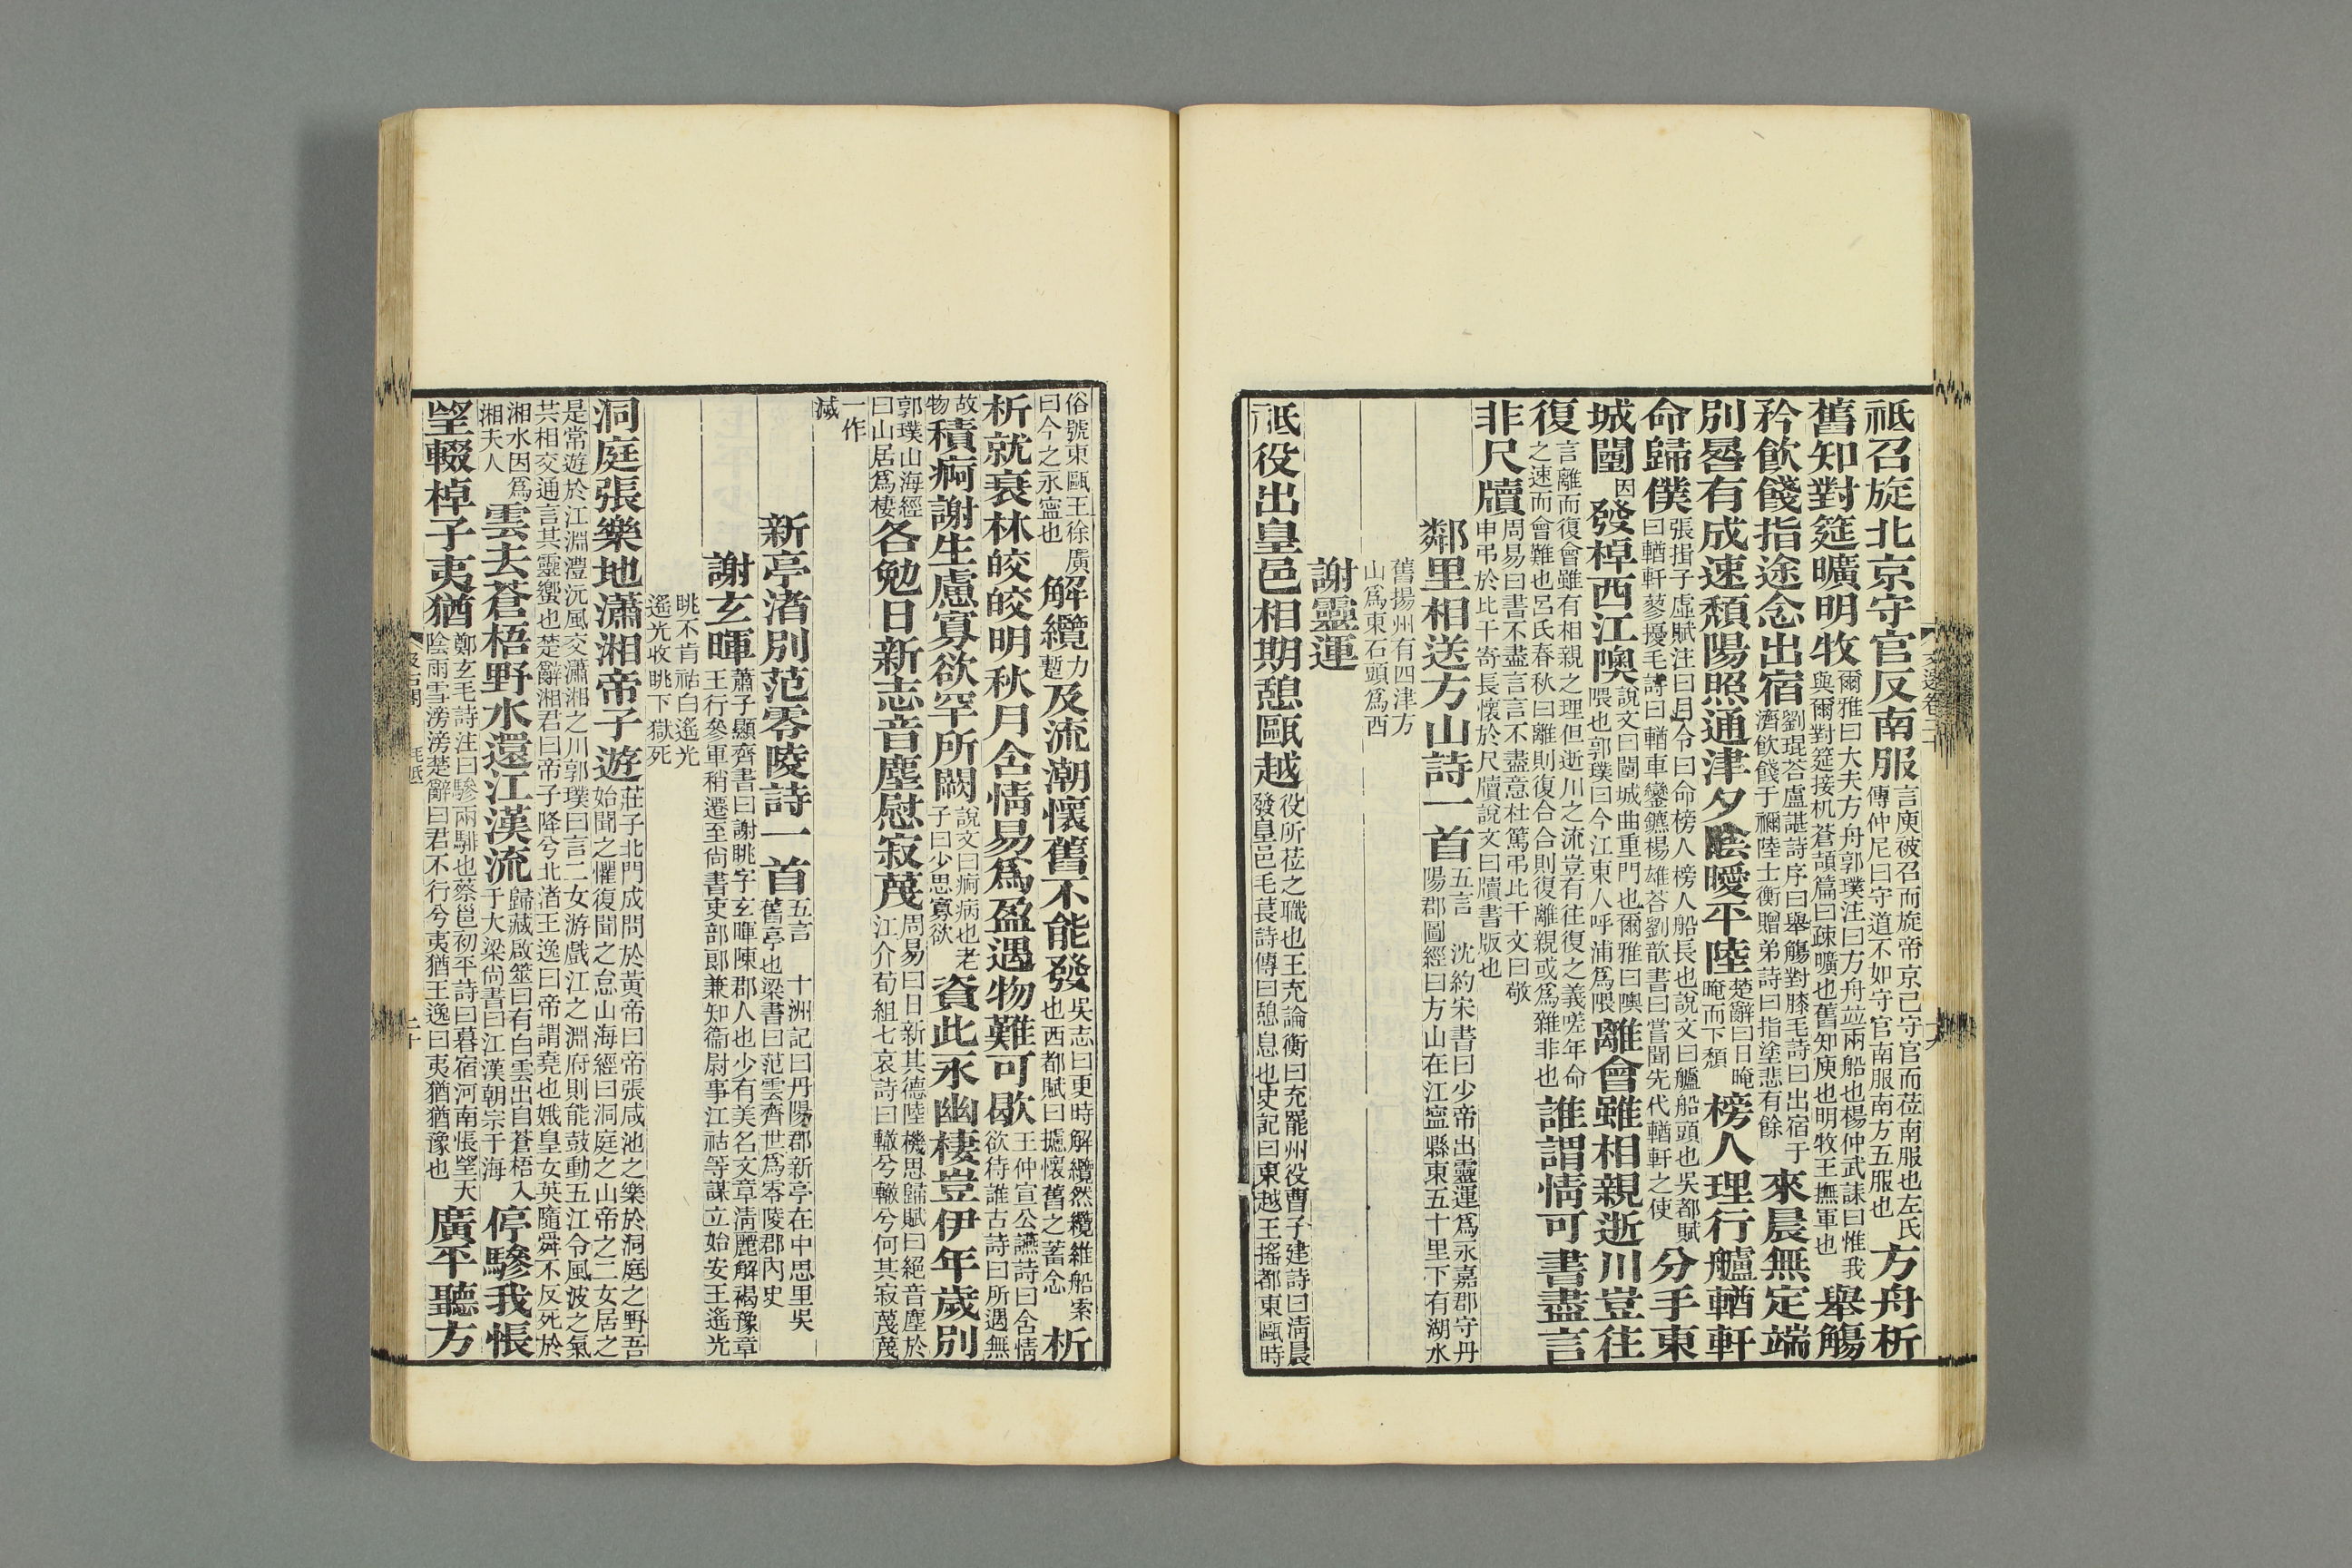 祗召旋北京守官反南服言庾被召而旋帝京已守官而莅南服也左氏傳仲尼曰守道不如守官南服南方五服也方舟析
舊知對筵曠明牧爾雅曰大夫方舟郭璞注曰方舟並兩船也楊仲武誄曰惟我與爾對筵接机蒼頡篇曰疎曠也舊知庾也明牧王撫軍也舉觴
矜飲餞指途念出宿劉琨荅盧諶詩序曰舉觴對膝毛詩曰出宿于濟飲餞于禰陸士衡贈弟詩曰指塗悲有餘來晨無定端
別晷有成速頹陽照通津夕陰曖平陸楚辭曰日晻晻而下頹榜人理行艫輶軒
命歸僕張揖子虛賦注曰月令曰命榜人榜人船長也說文曰艫船頭也吳都賦曰輶軒蓼擾毛詩曰輶車鑾鑣楊雄荅劉歆書曰嘗聞先代輶軒之使分手東
城闉因發棹西江隩說文曰闉城曲重門也爾雅曰隩隈也郭璞曰今江東人呼浦爲隈離會雖相親逝川豈往
復言離而復會雖有相親之理但逝川之流豈有往復之義嗟年命之速而會難也呂氏春秋曰離則復合合則復離親或爲雜非也誰謂情可書盡言
非尺牘周易曰書不盡言言不盡意杜篤弔比干文曰敬申弔於比干寄長懷於尺牘說文曰牘書版也
鄰里相送方山詩一首五言 沈約宋書曰少帝出靈運爲永嘉郡守丹陽郡圖經曰方山在江寧縣東五十里下有湖水
舊揚州有四津方山爲東石頭爲西
謝靈運
祗役出皇邑相期憩甌越役所莅之職也王充論衡曰充罷州役曹子建詩曰清晨發皇邑毛萇詩傳曰憩息也史記曰東越王搖都東甌時
俗號東甌王徐廣曰今之永寧也解纜力暫及流潮懷舊不能發吳志曰更時解纜然纜維船索也西都賦曰攄懷舊之蓄念析
析就衰林皎皎明秋月含情易爲盈遇物難可歇王仲宣公讌詩曰含情欲待誰古詩曰所遇無
故物積痾謝生慮寡欲罕所闕說文曰痾病也老子曰少思寡欲資此永幽棲豈伊年歲別
郭璞山海經曰山居爲棲各勉日新志音塵慰寂蔑周易曰日新其德陸機思歸賦曰絕音塵於江介荀組七哀詩曰轍兮轍兮何其寂蔑蔑
一作滅
新亭渚別范零陵詩一首五言 十洲記曰丹陽郡新亭在中思里吳舊亭也梁書曰范雲齊世爲零陵郡內史
謝玄暉蕭子顯齊書曰謝眺字玄暉陳郡人也少有美名文章清麗解褐豫章王行參軍稍遷至尙書吏部郎兼知衞尉事江祏等謀立始安王遙光
眺不肯祏白遙光遙光收眺下獄死
洞庭張樂地瀟湘帝子遊莊子北門成問於黃帝曰帝張咸池之樂於洞庭之野吾始聞之懼復聞之怠山海經曰洞庭之山帝之二女居之
是常遊於江淵澧沅風交瀟湘之川郭璞曰言二女游戲江之淵府則能鼓動五江令風波之氣共相交通言其靈蠁也楚辭湘君曰帝子降兮北渚王逸曰帝謂堯也娥皇女英隨舜不反死於
湘水因爲湘夫人雲去蒼梧野水還江漢流歸藏啟筮曰有白雲出自蒼梧入于大梁尙書曰江漢朝宗于海停驂我悵
望輟棹子夷猶鄭玄毛詩注曰驂兩騑也蔡邕初平詩曰暮宿河南悵望天陰雨雪滂滂楚辭曰君不行兮夷猶王逸曰夷猶猶豫也廣平聽方